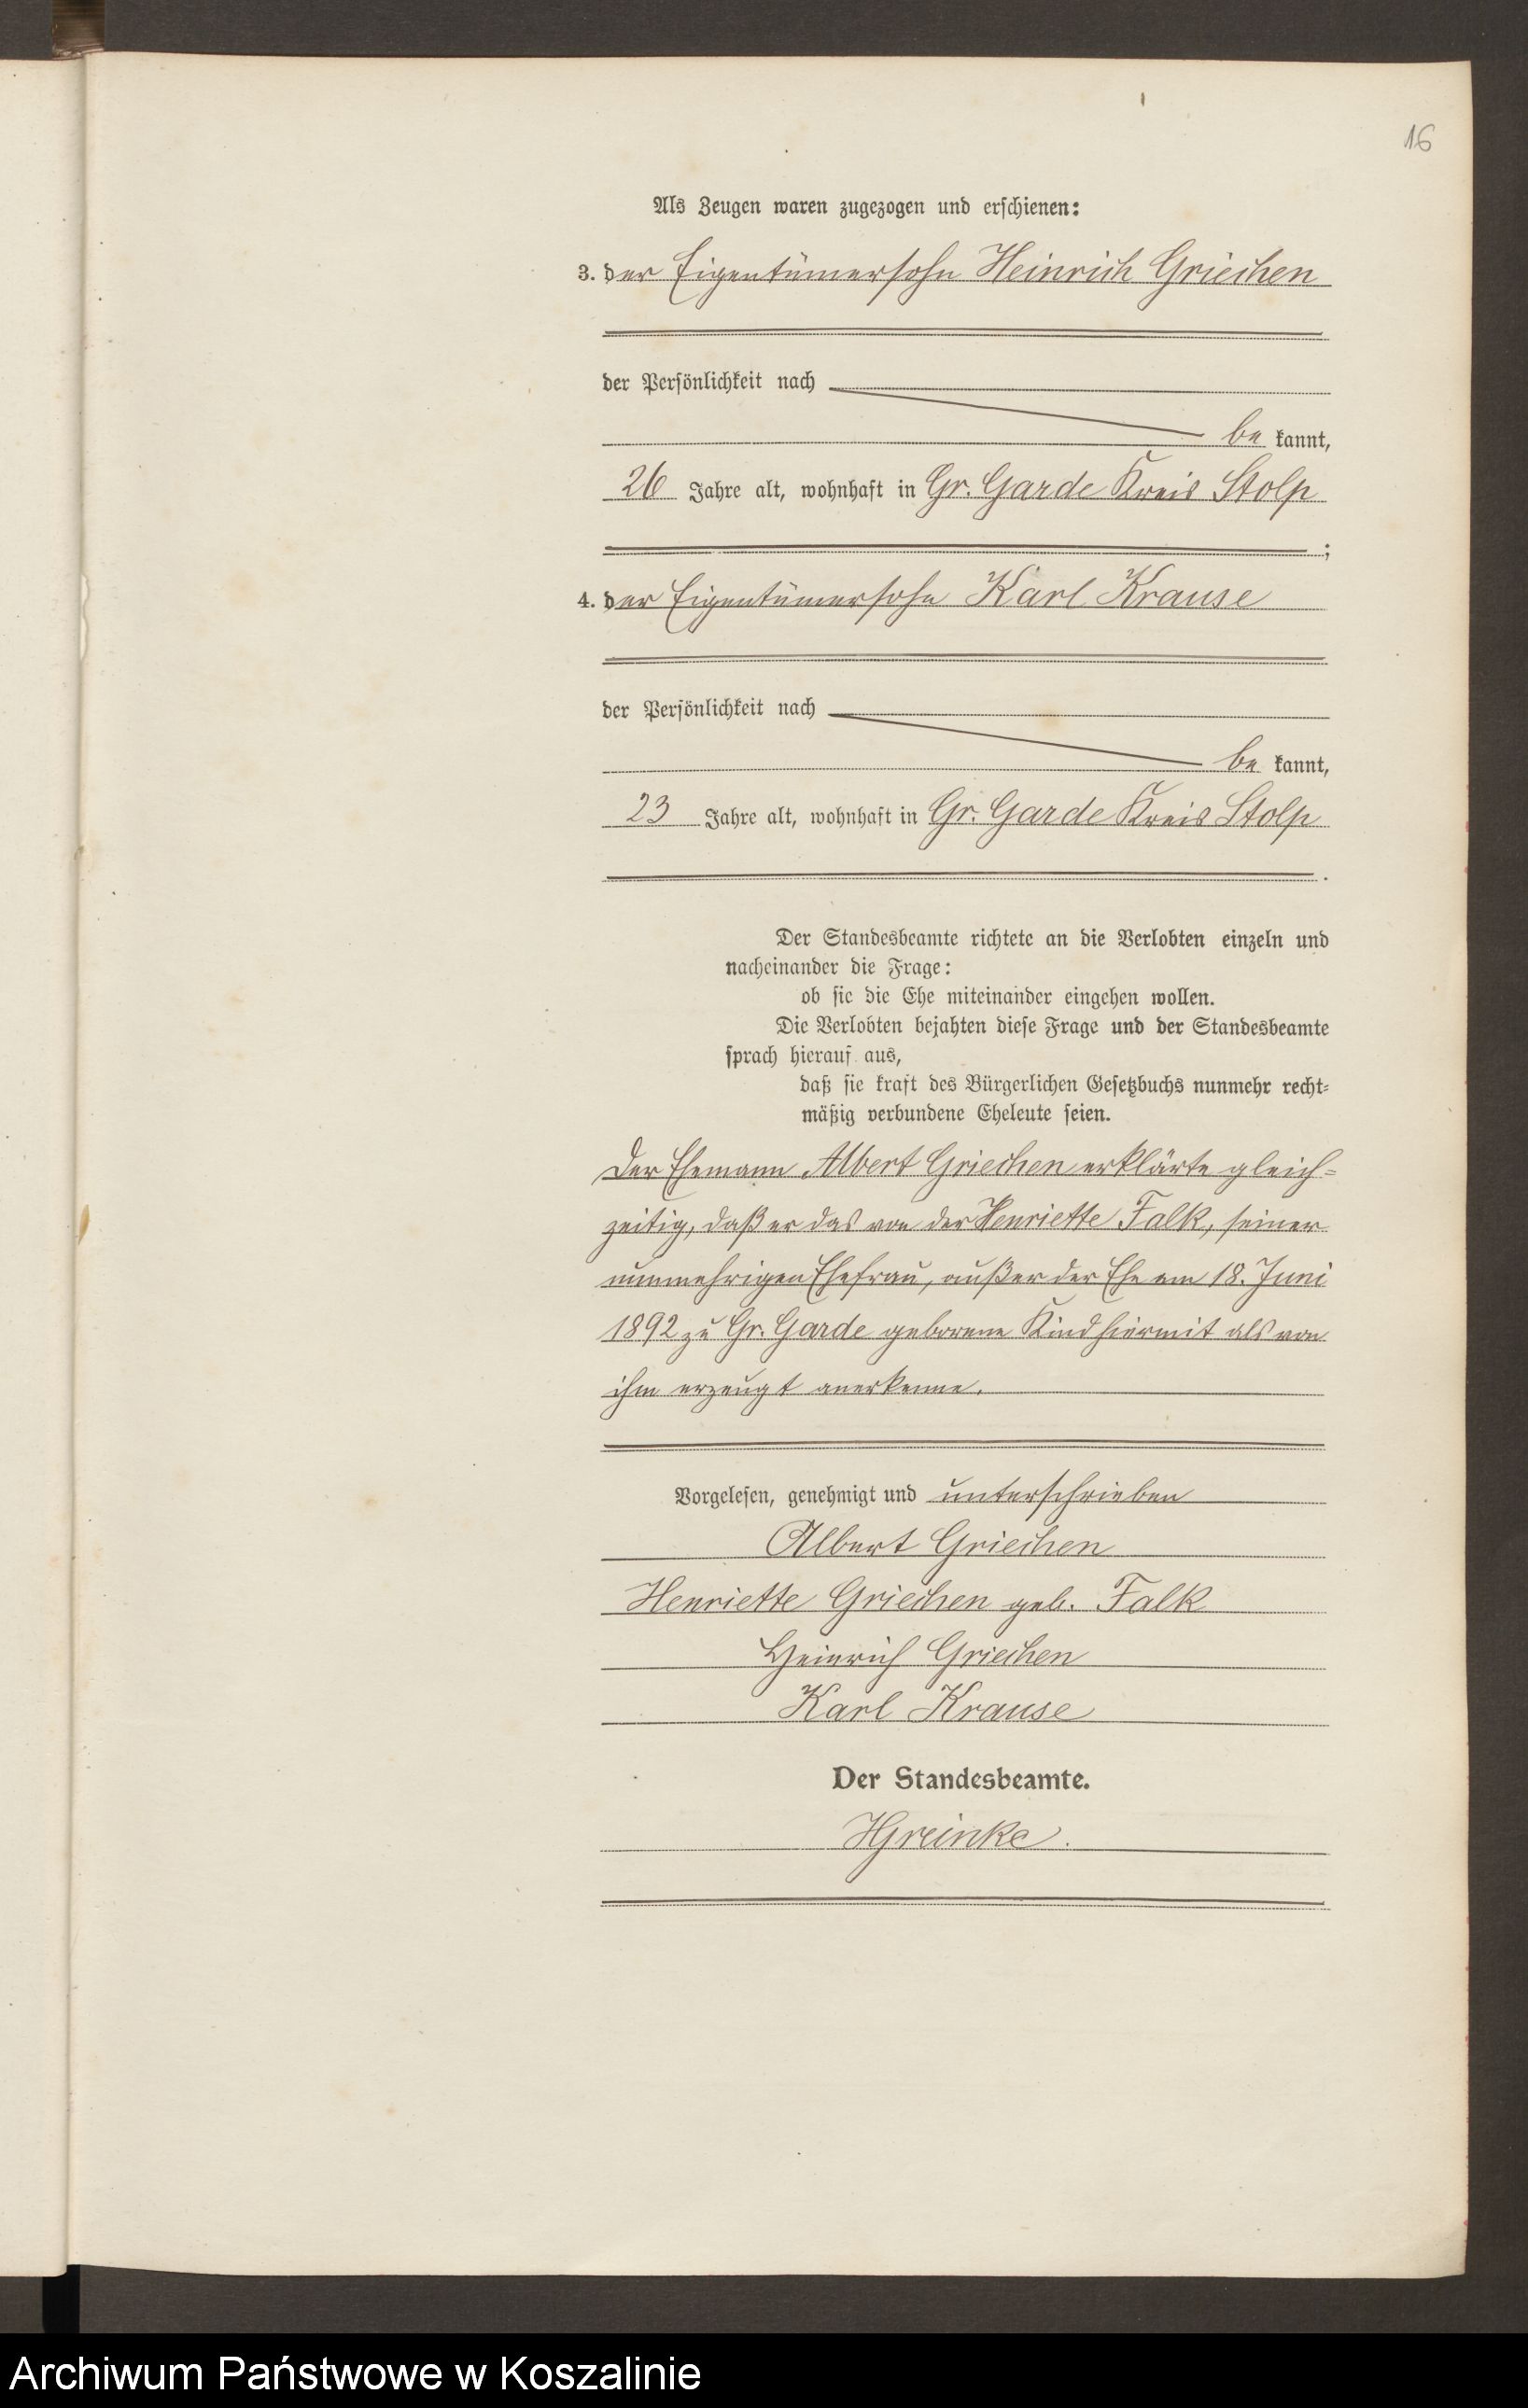 16
Als Zeugen waren zugezogen und erschienen:
3. der Eigentümersohn Heinrich Griechen
der Persönlichkeit nach
be kannt,
26 Jahre alt, wohnhaft in Gr. Garde Kreis Stolp
;
4. der Eigentümersohn Karl Krause
der Persönlichkeit nach
be kannt,
23 Jahre alt, wohnhaft in Gr. Garde Kreis Stolp
.
Der Standesbeamte richtete an die Verlobten einzeln und
nacheinander die Frage:
ob sie die Ehe miteinander eingehen wollen.
Die Verlobten bejahten diese Frage und der Standesbeamte
sprach hierauf aus,
daß sie kraft des Bürgerlichen Gesetzbuchs nunmehr recht-
mäßig verbundene Eheleute seien.
Der Ehemann Albert Griechen erklärte gleich-
zeitig, daß er das von der Henriette Falk, seiner
nunmehrigen Ehefrau, außer der Ehe am 18. Juni
1892 zu Gr. Garde geborene Kind hiermit als von
ihm erzeugt anerkenne.
Vorgelesen, genehmigt und unterschrieben
Albert Griechen
Henriette Griechen geb. Falk
Heinrich Griechen
Karl Krause
Der Standesbeamte.
HGreinke.
Archiwum Państwowe w Koszalinie